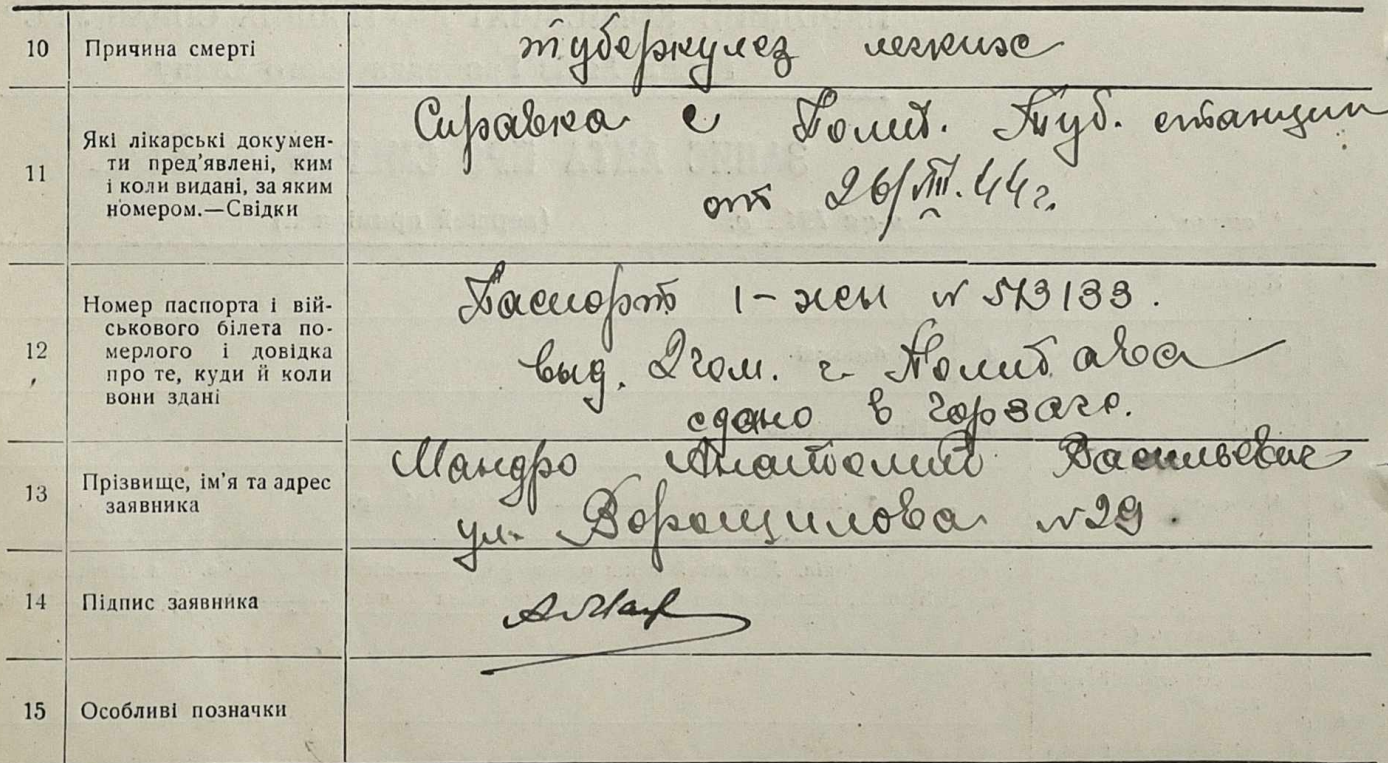 10 Причина смерті туберкулез легких
11 Які лікарські докумен-
ти пред'явлені, ким
і коли видані, за яким
номером.—Свідки
Справка с Полт. Туб. станции
от 26/III.44г.
12 Номер паспорта і вій-
ськового білета по-
мерлого і довідка
про те, куди й коли
вони здані
Паспорт I-жен № 573133.
выд. 2гом. г. Полтава
сдано в горзагс.
13 Прізвище, ім'я та адрес
заявника
Мандро Анатолий Васильевич
ул. Ворошилова №29.
14 Підпис заявника
15 Особливі позначки